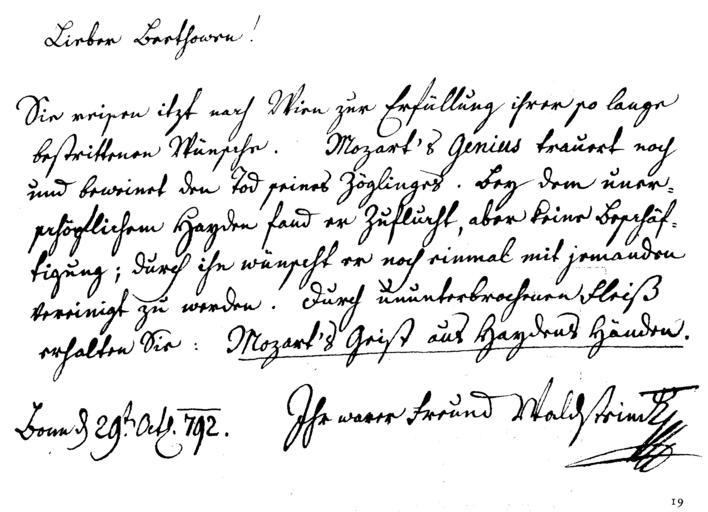 Lieber Beethowen!
Sie reisen itzt nach Wien zur Erfüllung ihrer so lange
bestrittenen Wünsche. Mozart's Genius trauert noch
und beweinet den Tod seines Zöglinges. Bey dem uner=
schöpflichem Hayden fand er Zuflucht, aber keine Beschäf=
tigung; durch ihn wünscht er noch einmal mit jemanden
vereinigt zu werden. Durch ununterbrochenen Fleiß
erhalten Sie: Mozart's Geist aus Haydens Händen.
Bonn d 29t Oct. 792. Ihr warer Freund Waldstein
19